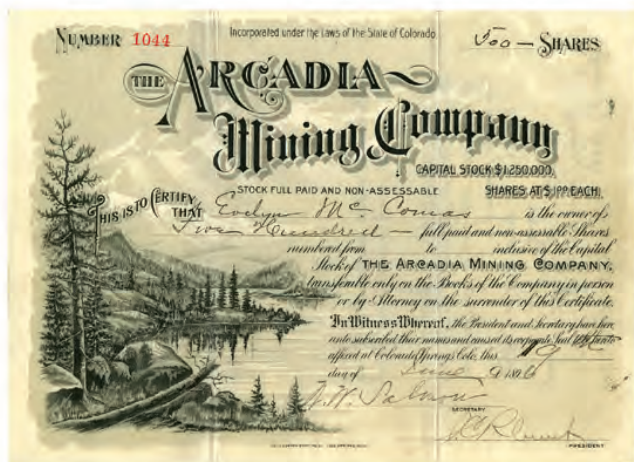 NUMBER 1044
Incorporated under the Laws of the State of Colorado
500 — SHARES
THE ARCADIA
Mining Company
CAPITAL STOCK $1,250,000,
STOCK FULL PAID AND NON-ASSESSABLE
SHARES AT $1.00 EACH.
THIS IS TO CERTIFY THAT Evelyn Mc Comas is the owner of
Five Hundred — full paid and non-assessable Shares
numbered from to inclusive of the Capital
Stock of THE ARCADIA MINING COMPANY,
transferable only on the Books of the Company in person
or by Attorney on the surrender of this Certificate.
In Witness Whereof, the President and Secretary have here
unto subscribed their names and caused its corporate Seal to be hereto
affixed at Colorado Springs Colo. this
day of June 1896
SECRETARY
PRESIDENT